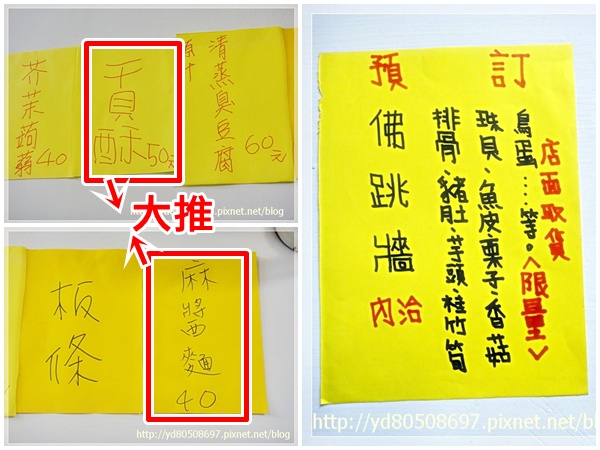 芥茉蒟蒻40
干貝酥50元
清蒸臭豆腐60元
http://yd80508697.pixnet.net/blog
大推
板條
麻將西麵40
http://yd80508697.pixnet.net/blog
預訂
佛跳牆
內洽
排骨、豬肚、芋頭、桂竹筍
珠貝、魚皮、栗子、香菇
鳥蛋....等。
店面取貨<限量>
http://yd80508697.pixnet.net/blo